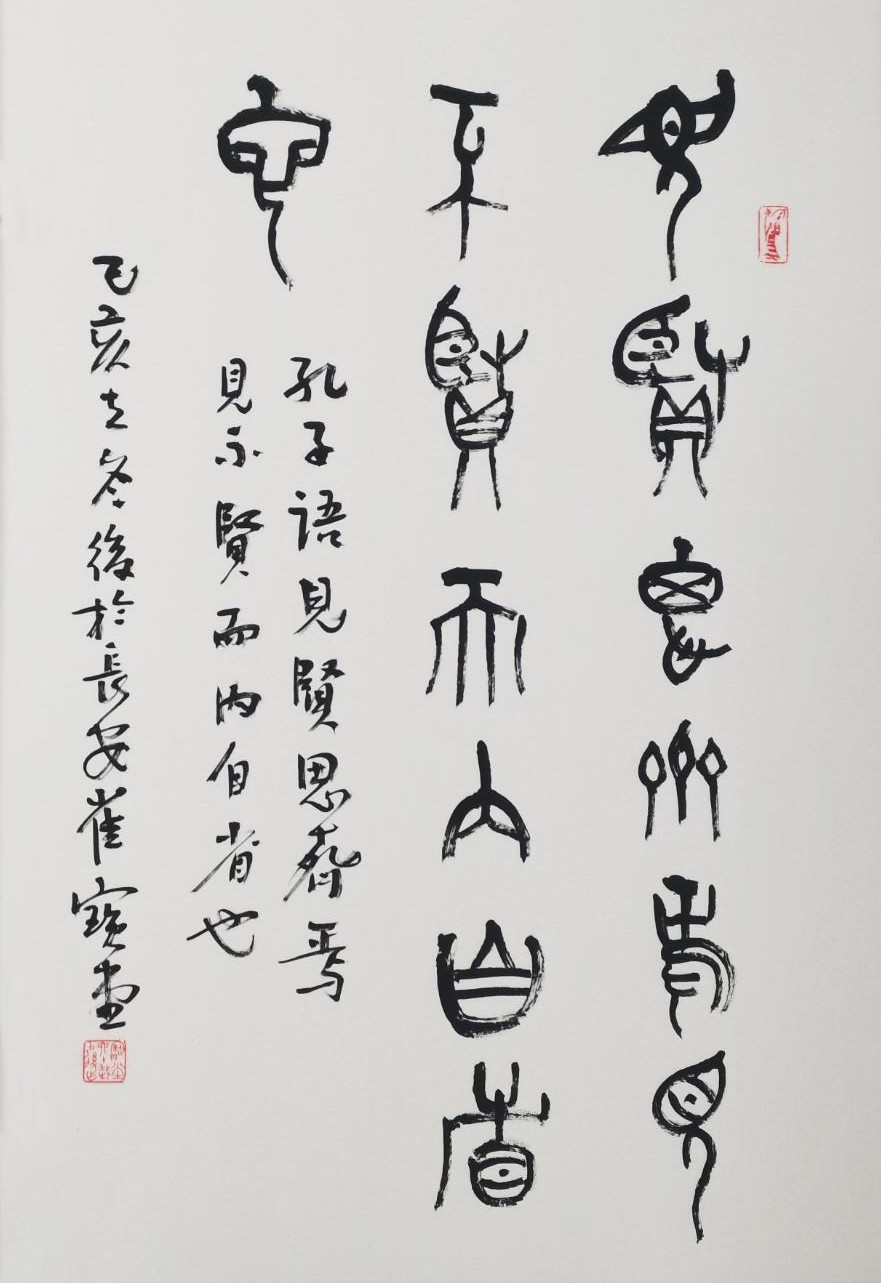 見賢思齊焉見
不賢而内自省
也
孔子語見賢思齊焉
見不賢而内自省也
己亥立冬後於長安崔寶堂